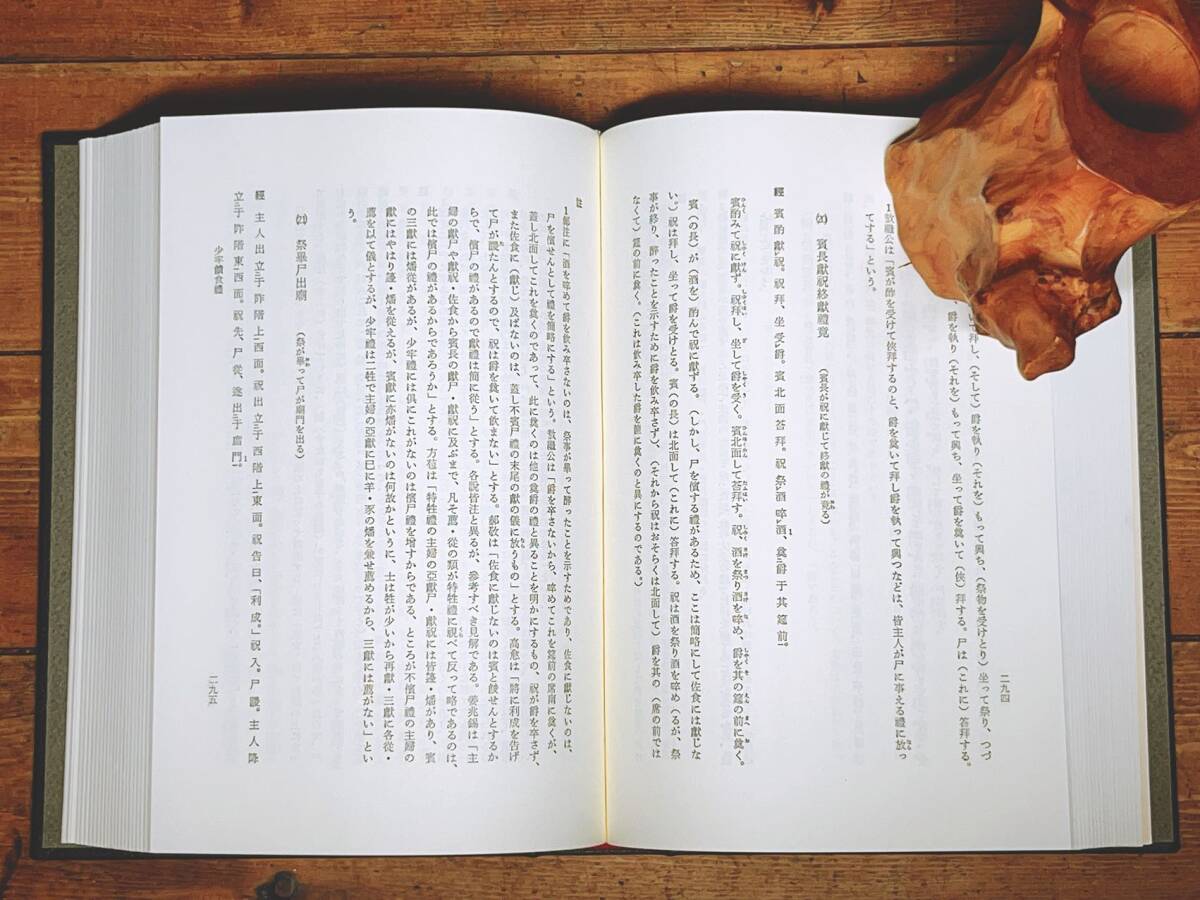 いて拜し、(そして)爵を執り(それを)もって興ち、(祭物を受けとり)坐って祭り、つづ
爵を執り(それを)もって興ち、坐って爵を奠いて(俠)拜する。尸は(これに)答拜する。
1敖繼公は「賓が酢を受けて俠拜するのと、爵を奠いて拜し爵を執って興つなどは、皆主人が尸に事える禮に放っ
てする」という。
賓長獻祝終獻禮竟 (賓長が祝に獻じて終獻の禮が竟る)
經 賓酌獻祝。祝拜、坐受爵。賓北面答拜。祝祭酒啐酒、奠爵于其筵前。
賓酌みて祝に獻ず。祝拜し、坐して爵を受く。賓北面して荅拜す。祝、酒を祭り酒を啐め、爵を其の筵の前に奠く。
賓(の長)が(酒を)酌んで祝に獻ずる。(しかし、尸を儐する禮があるため、ここは簡略にして佐食には獻じな
い。)祝は拜し、坐って爵を受けとる。賓(の長)は北面して(これに)答拜する。祝は酒を祭り酒を啐め(るが、祭
事が終り、醉ったことを示すために爵を飮み卒さず)、(それから祝はおそらくは北面して)爵を其の(席の前では
なくて)筵の前に奠く。(これは飮み卒した爵を篚に奠くのと異にするのである。)
二九四
註
1鄭注に「酒を啐めて爵を飮み卒さないのは、祭事が畢って醉ったことを示すためであり、佐食に獻じないのは、
尸を儐せんとして禮を簡略にする」という。敖繼公は「爵を卒さないから、啐めてこれを筵前の席南に奠くが、
蓋し北面してこれを奠くのであって、此に奠くのは他の奠爵の禮と異ることを明かにするもの、祝が爵を卒さず、
また佐食に(獻じ)及ばないのは、蓋し不賓尸禮の末尾の獻の儀に放うもの」とする。高愈は「將に利成を告げ
て尸が謖たんとするので、祝は爵を奠いて飮まない」とする。郝敬は「佐食に獻じないのは賓と餕せんとするか
らで、儐尸の禮があるので獻禮は簡に從う」とする。各説皆注と異るが、參考すべき見解である。姜兆錫は「主
婦の獻尸や獻祝・佐食から賓長の獻尸・獻祝に及ぶまで、凡そ薦・從の類が特牲禮に視べて反って略であるのは、
此では儐尸の禮があるからであろうか」とする。方苞は「特牲禮の主婦の亞獻尸・獻祝には皆籩・燔があり、賓
の三獻には燔從があるが、少牢禮には倶にこれがないのは儐尸禮を增すからである、ところが不儐尸禮の主婦の
獻にはやはり籩・燔を從えるが、賓獻に亦燔がないのは何故かというに、士は牲が少いから再獻・三獻に各從・
薦を以て儀とするが、少牢禮は二牲で主婦の亞獻に已に羊・豕の燔を兼せ薦めるから、三獻には薦がない」とい
う。
祭畢尸出廟 (祭が畢って尸が廟門を出る)
經 主人出立于阼階上西面。祝出立于西階上東面。祝告曰、「利成。」祝入。尸謖。主人降
立于阼階東西面。祝先、尸從、遂出于廟門。
少牢饋食禮
二九五